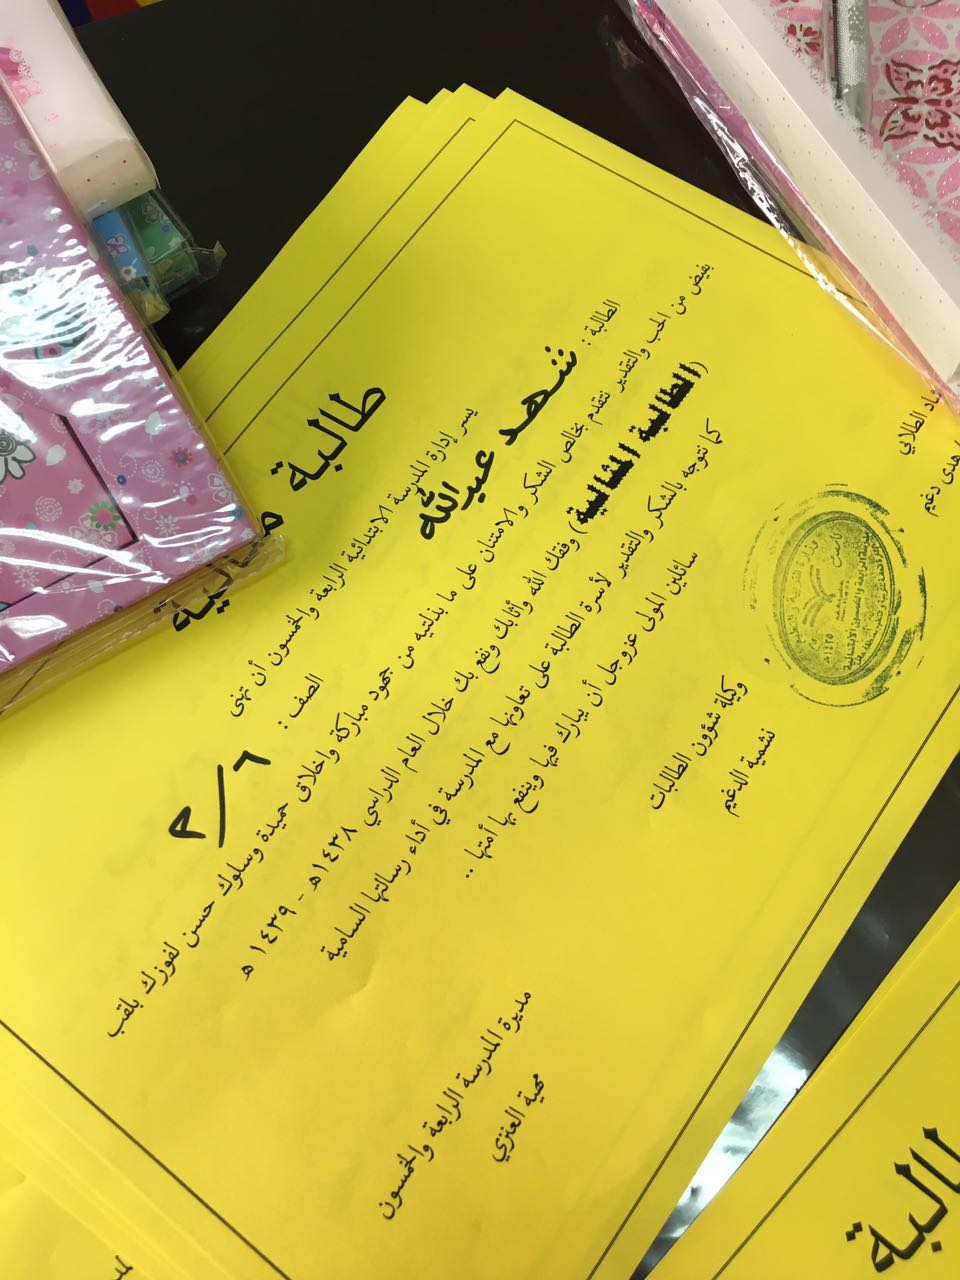 طالبة مثالية
يسر إدارة المدرسة الابتدائية الرابعة والخمسون أن تهنى
الطالبة : شهد عبدالله الصف : ٢/٦
بفيض من الحب والتقدير نتقدم بخالص الشكر والامتنان على ما بذلتيه من جهود مباركة واخلاق حميدة وسلوك حسن لفوزك بلقب
(الطالبة المثالية) وفقك الله وأثابك ونفع بك خلال العام الدراسي ١٤٣٨هـ - ١٤٣٩ هـ
كما نتوجه بالشكر والتقدير لأسرة الطالبة على تعاونها مع المدرسة في أداء رسالتها السامية
سائلين المولى عزوجل أن يبارك فيها وينفع بها أمتها ..
الطلابي
هدى دغيم
وكيلة شؤون الطالبات
نشمية الدغيم
مديرة المدرسة الرابعة والخمسون
مهية العنزي
١٤٢٥هـ
طالبة